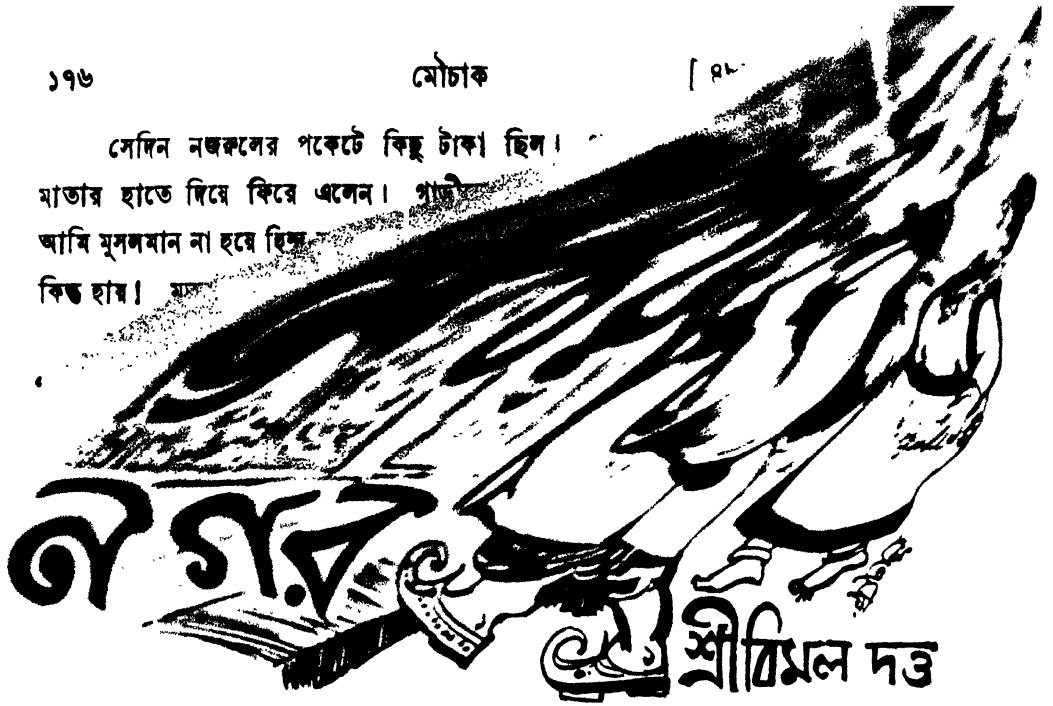 ১৭৬ মৌচাক
সেদিন নজরুলের পকেটে কিছু টাকা ছিল।
মাতার হাতে দিয়ে ফিরে এলেন।
আমি মুসলমান না হয়ে
কিন্তু হায়!
নগর
শ্রীবিমল দত্ত